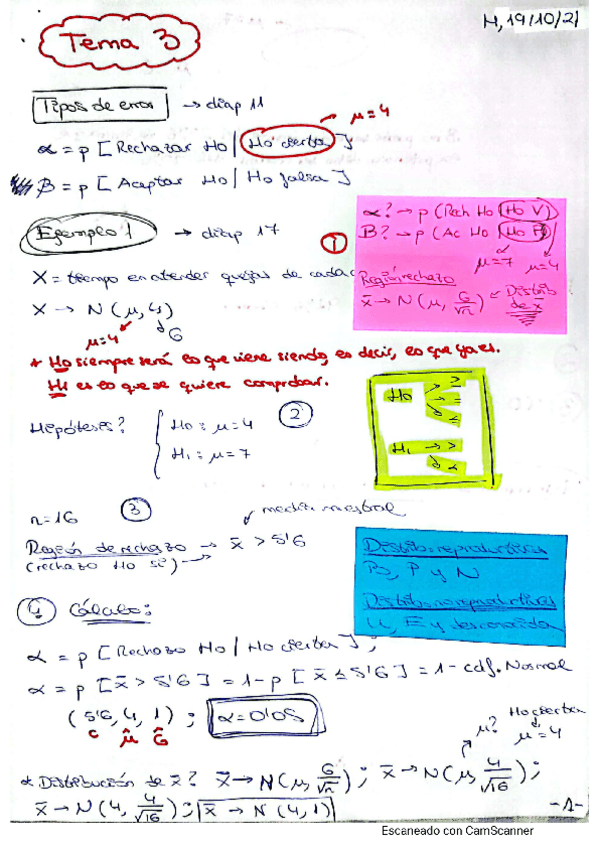 M, 19/10/21
Tema 3
Tipos de error → diap 11
α = p [Rechazar Ho | Ho cierta] → μ=4
β = p [Aceptar Ho | Ho falsa]
Ejemplo 1 → diap 17
①
α? → p (Rech Ho | Ho V)
β? → p (Ac Ho | Ho F)
μ=7 μ=4
Región rechazo
x̄ → N(μ, σ/√n) ← Distrib de x̄
X = tiempo en atender quejas de cada
X → N(μ, 4)
μ=4 σ
* Ho siempre será lo que viene siendo, es decir, lo que ya es.
H1 es lo que se quiere comprobar.
Hipótesis? { Ho: μ=4 ②
H1: μ=7
Ho → ≥ = ≤
H1 → > <
n=16 ③
media muestral
Región de rechazo → x̄ > 5'6
(rechazo Ho si) →
Distrib. reproductivas
B, P y N
Distrib. no reproductivas
U, E y desconocida
④ Cálculo:
α = p [Rechazo Ho | Ho cierta];
α = p [x̄ > 5'6] = 1 - p [x̄ ≤ 5'6] = 1 - cdf.Normal
(5'6, 4, 1); α=0'05
c μ̂ σ̂
μ? Ho cierta μ=4
* Distribución de x̄? x̄ → N(μ, σ/√n); x̄ → N(μ, 4/√16);
x̄ → N(4, 4/√16); x̄ → N(4,1)
-1-
Escaneado con CamScanner